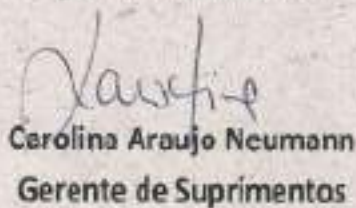 Carolina Araujo Neumann
Gerente de Suprimentos